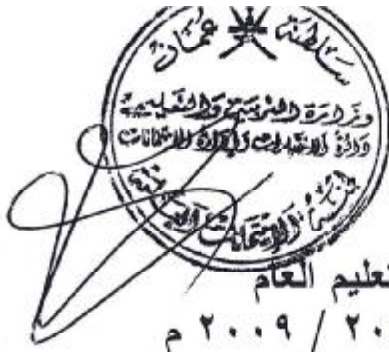 سلطنة عمان
وزارة التربية والتعليم
دائرة الامتحانات وإدارة الامتحانات
الامتحانات
تعليم العام
٢٠ / ٢٠٠٩ م